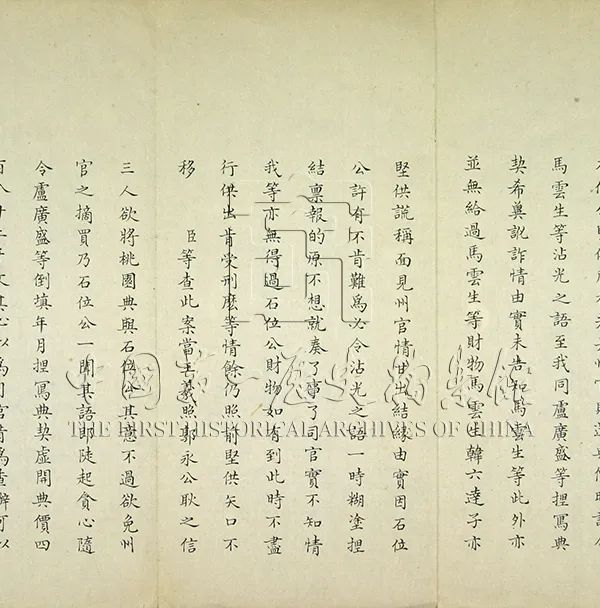 馬雲生等沾光之語至我同盧廣盛等捏寫典
契希冀訛詐情由實未告知馬雲生等此外亦
並無給過馬雲生等財物馬雲生韓六達子亦
堅供謊稱面見州官情甘出結緣由實因石位
公許有不肯難為必令沾光之語一時糊塗捏
結稟報的原不想就奏了事了司官實不知情
我等亦無得過石位公財物如有到此時不盡
行供出肯受刑麼等情餘仍照前堅供矢口不
移　臣等查此案當王羲照郭永公耿之信
三人欲將桃園典與石位公其意不過欲免州
官之摘買乃石位公一聞其語即陡起貪心隨
令盧廣盛等倒填年月捏寫典契虛開典價四
中國第一歷史檔案館
THE FIRST HISTORICAL ARCHIVES OF CHINA